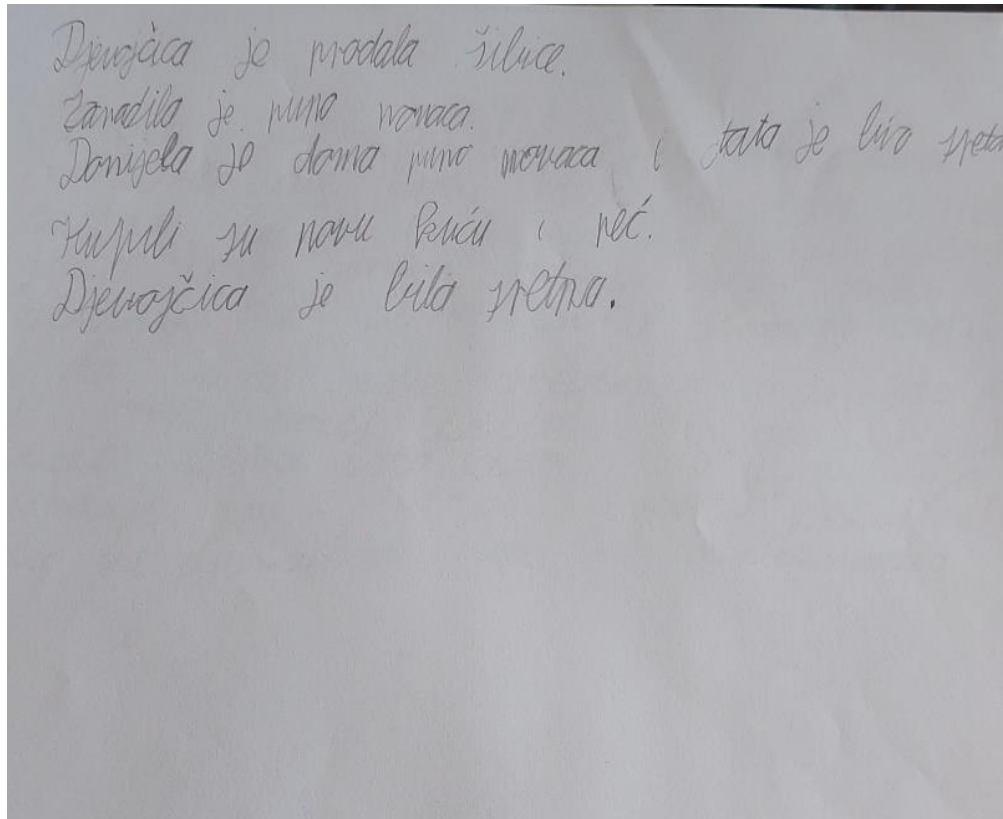 Djevojčica je prodala šibice.
Zaradila je puno novaca.
Donijela je doma puno novaca i tata je bio sretan
Kupili su novu kuću i peć.
Djevojčica je bila sretna.